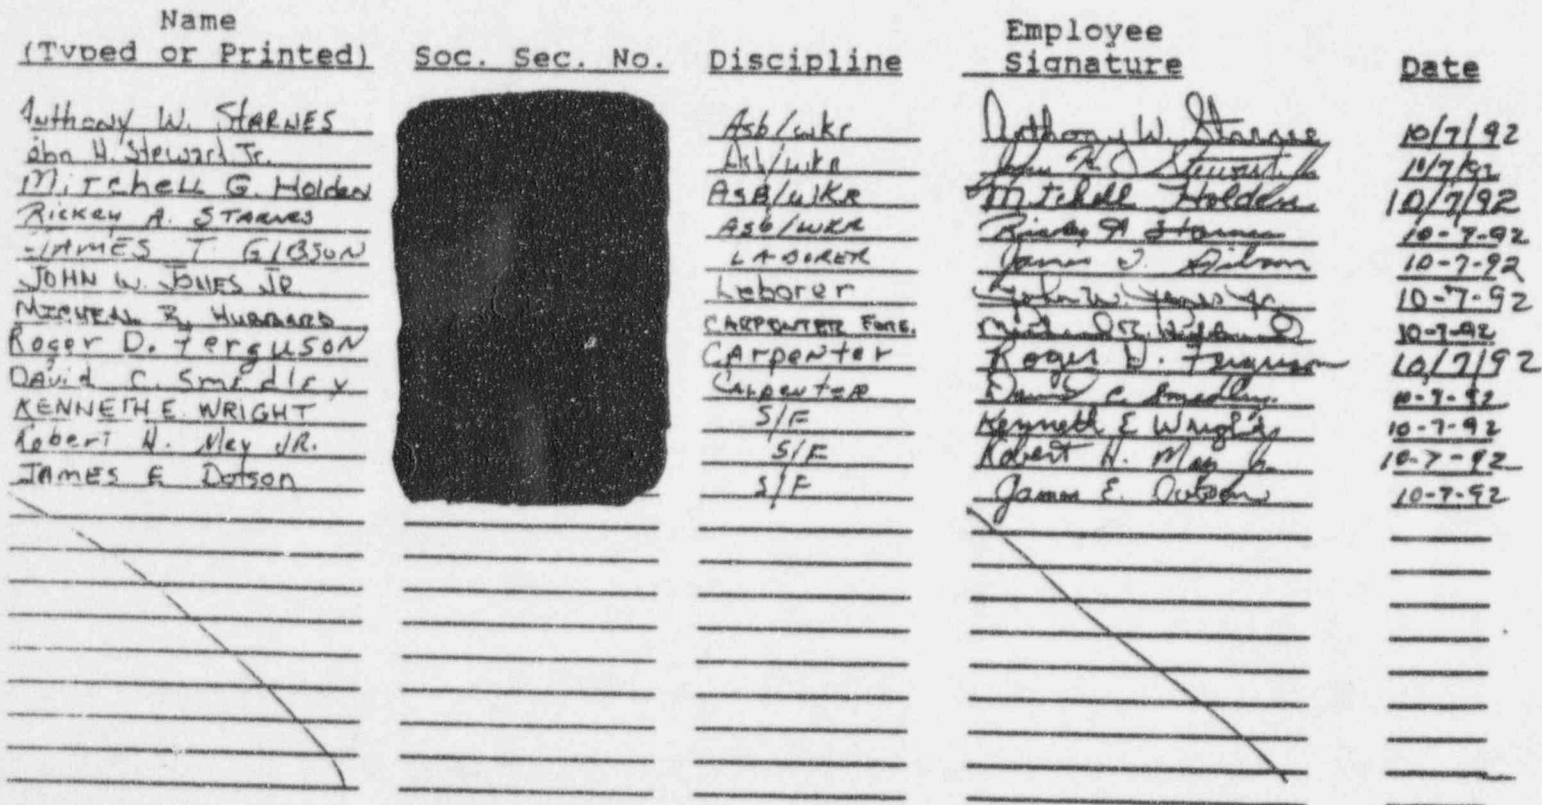 Name
(Typed or Printed) Soc. Sec. No. Discipline Employee Signature Date
Anthony W. STARNES Asb/wkr Anthony W. Starnes 10/7/92
ohn H. Steward Jr. Asb/wkr John H. Stewart Jr. 10/7/92
Mitchell G. Holden AsB/WKR Mitchell Holden 10/7/92
Rickey A. STARNES ASb/WKR Rickey A Starnes 10-7-92
JAMES T GIBSON LABORER James T. Gibson 10-7-92
JOHN W. JONES JR Leborer John W. Jones Jr. 10-7-92
MICHEAL R. HUBBARD CARPENTER FORE. 10-7-92
Roger D. Ferguson CArpenter Roger D. Ferguson 10/7/92
DAvid C. Smedley CARpenter David C. Smedley 10-7-92
KENNETH E. WRIGHT S/F Kenneth E Wright 10-7-92
Robert H. May JR. S/F Robert H. May Jr 10-7-92
JAMES E Dotson S/F James E. Dotson 10-7-92